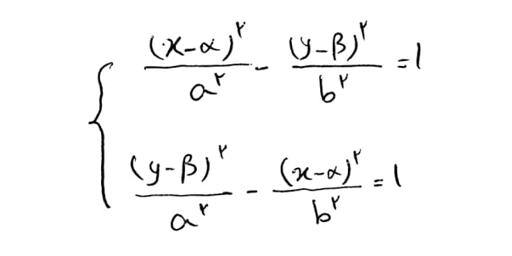 (x-α)^۲/a^۲ - (y-β)^۲/b^۲ = ۱
(y-β)^۲/a^۲ - (x-α)^۲/b^۲ = ۱